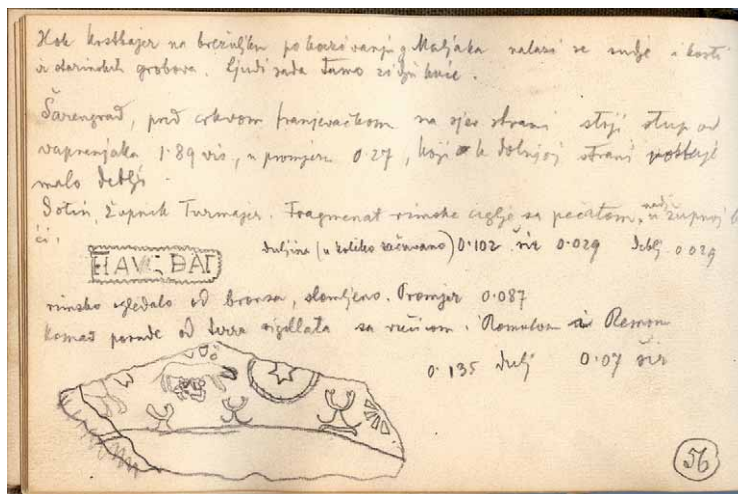 Kod na brežuljku po kazivanju g Maljaka nalazi se sudje i kosti
iz starinskih grobova. Ljudi sada tamo zidju kuće.
Šarengrad, pred crkvom franjevačkom na sjev strani stoji stup od
vapnenjaka 1·89 vis, u promjeru 0·27, koji k dolnjoj strani
malo deblji.
Sotin, župnik Turmajer. Fragmenat rimske ciglje sa pečatom, u župnoj k
ći.
duljina (u koliko sačuvano) 0·102 šir 0·029 deblj 0·029
HAVG DAT
rimsko ogledalo od bronsa, slomljeno. Promjer 0·087
komad posude od terra sigillata sa vučicom i Romulom i Remom
0·135 dulj 0·07 šir
56